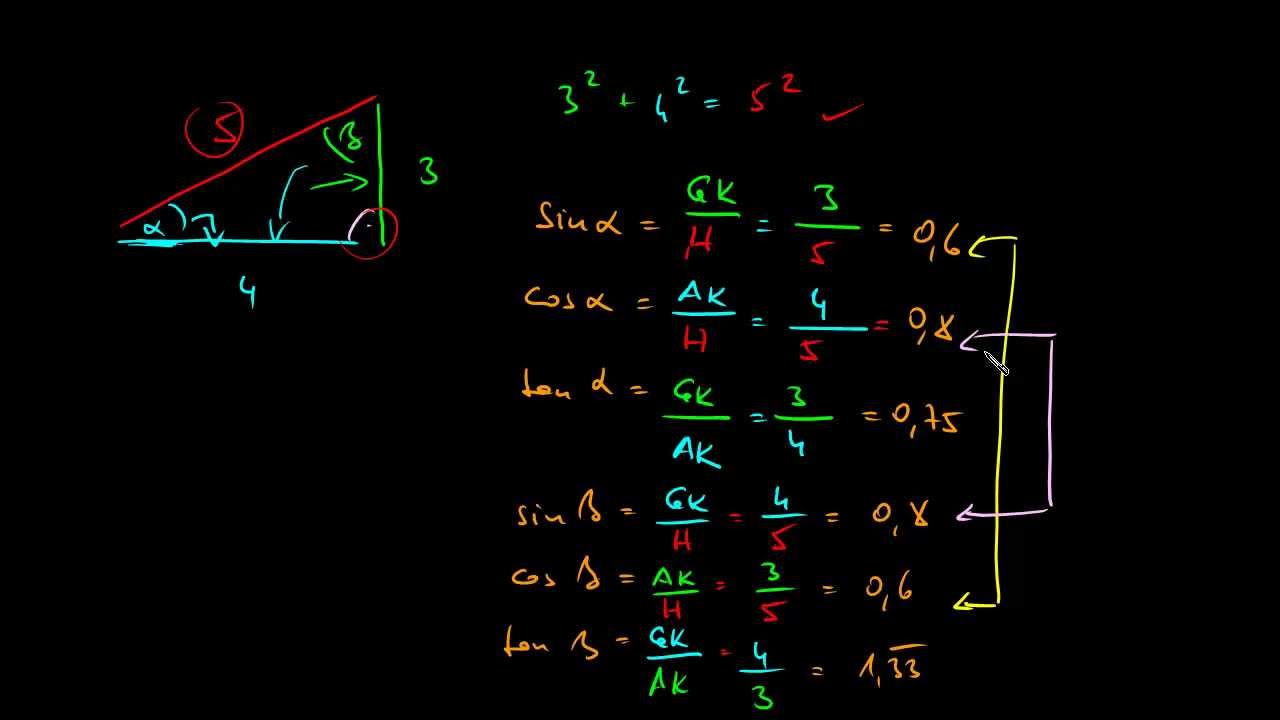 3² + 4² = 5² ✓
5
β
3
α
4
sin α = GK/H = 3/5 = 0,6
cos α = AK/H = 4/5 = 0,8
tan α = GK/AK = 3/4 = 0,75
sin β = GK/H = 4/5 = 0,8
cos β = AK/H = 3/5 = 0,6
tan β = GK/AK = 4/3 = 1,3̅3̅